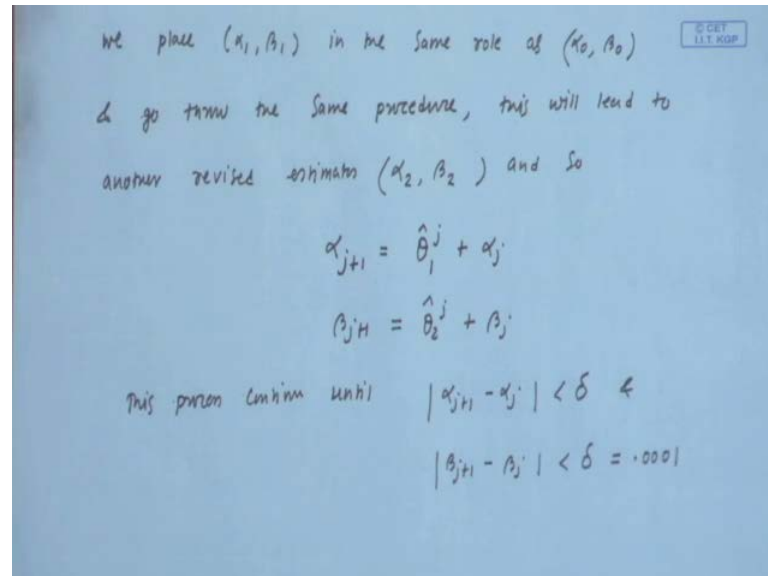 we place (α₁, β₁) in the same role as (α₀, β₀)
© CET
I.I.T. KGP
& go thru the same procedure, this will lead to
another revised estimates (α₂, β₂) and so
α_{j+1} = θ̂₁ʲ + αⱼ
β_{j+1} = θ̂₂ʲ + βⱼ
This process continue until |α_{j+1} - αⱼ| < δ &
|β_{j+1} - βⱼ| < δ = .0001